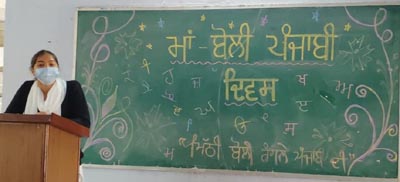 ਮਾਂ-ਬੋਲੀ ਪੰਜਾਬੀ
ਦਿਵਸ
"ਮਿੱਠੀ ਬੋਲੀ ਰੰਗਲੇ ਪੰਜਾਬ ਦੀ"